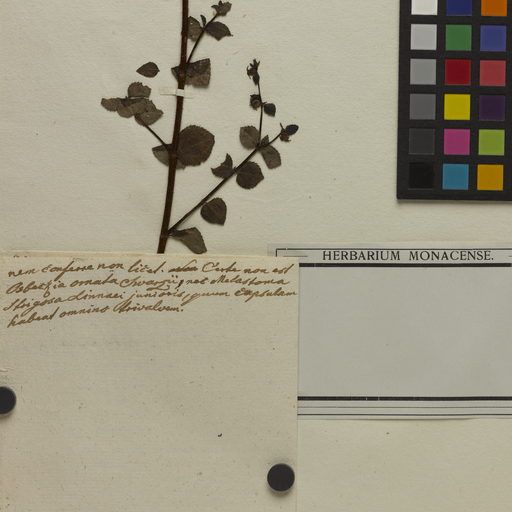 nem conferre non licet. Certe non est
ornata Swarzii, nec Melastoma
Strigosa Linnaei junioris, quum Capsulam
habeat omnino trivalvem.
HERBARIUM MONACENSE.